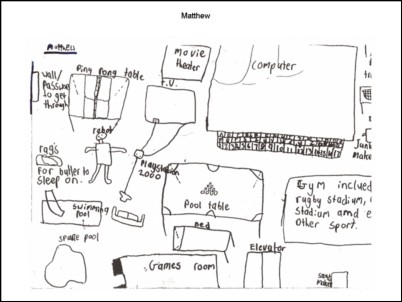 Matthew
Matthew
movie
theater
computer
wall/
to get
through
Ping Pong table
T.V.
robot
rags
for butler to
sleep on.
Playstation
2000
swimming
pool
Pool table
Gym includ
rugby stadium,
stadium and e
other sport.
Bed
Elevator
spare pool
Games room